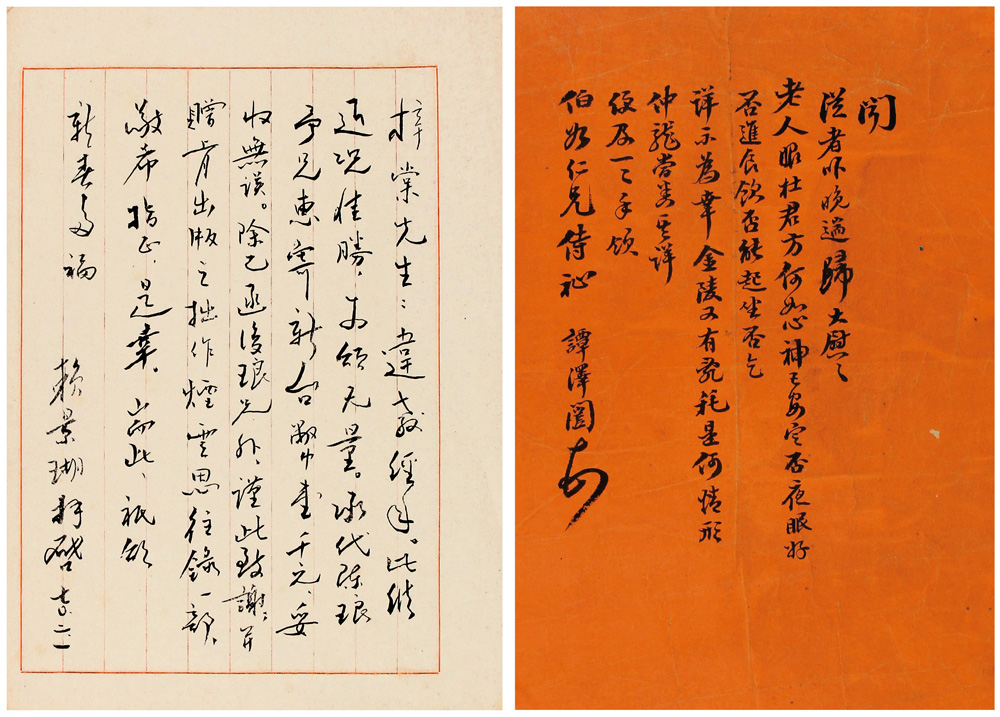 梓棠先生：違教經年。比維
近况佳勝，至頌无量。承代陈琅
予兄惠寄新台幣壹千元，妥
收無誤。除已函復琅兄外，謹此致謝；並
贈肯出版之拙作煙雲思往錄一部，
敬希指正，是幸。耑此、祇頌
新春多福
賴景瑚拜啓 七十、二、一
聞
從者昨晚遄歸 大慰〻
老人服杜君方何如心神已安定否夜眠好
否進食飲否能起坐否乞
詳示為幸 金陵又有電耗是何情形
仲龍嘗芜 詳
復及一一手頌
伯如仁兄侍祉 譚澤闓